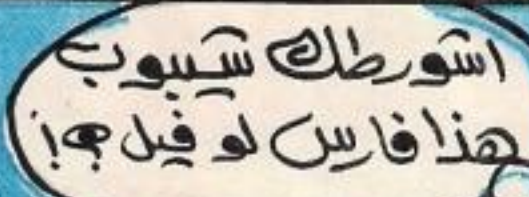 اشورطك شيبوب
هذا فارس لو فيل ؟!